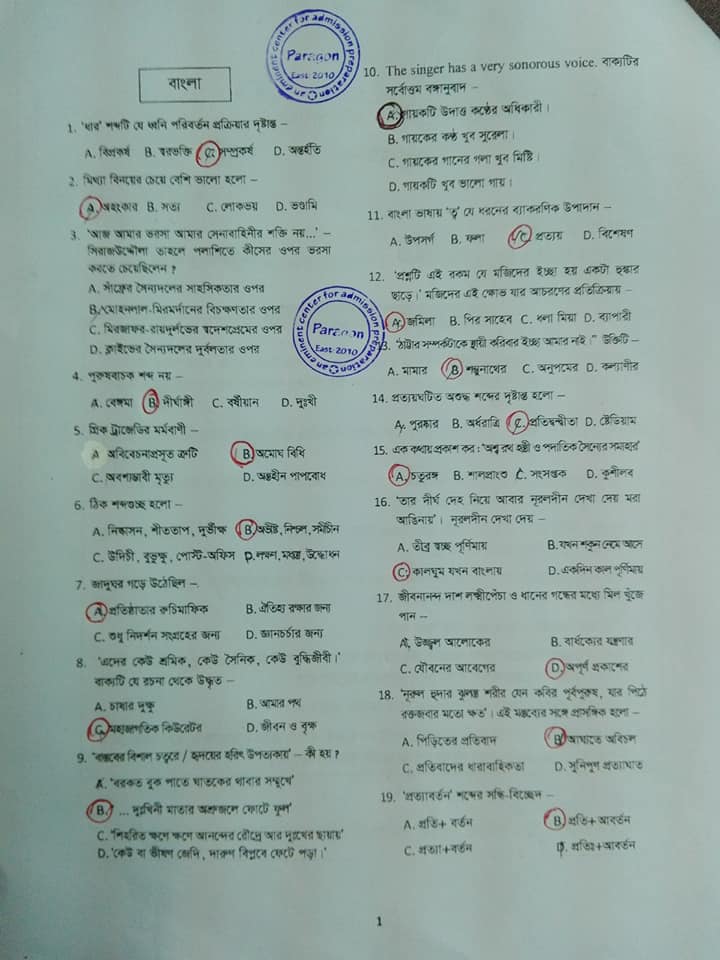 বাংলা
1. 'ধার' শব্দটি যে ধ্বনি পরিবর্তন প্রক্রিয়ার দৃষ্টান্ত –
A. বিপ্রকর্ষ B. স্বরভক্তি C. সম্প্রকর্ষ D. অন্তর্হতি
2. মিথ্যা বিনয়ের চেয়ে বেশি ভালো হলো –
A. অহংকার B. সত্য C. লোকভয় D. ভণ্ডামি
3. 'আজ আমার ভরসা আমার সেনাবাহিনীর শক্তি নয়...' –
সিরাজউদ্দৌলা তাহলে পলাশিতে কীসের ওপর ভরসা
করতে চেয়েছিলেন ?
A. সাঁফ্রের সৈন্যদলের সাহসিকতার ওপর
B. মোহনলাল-মিরমর্দানের বিচক্ষণতার ওপর
C. মিরজাফর-রায়দুর্লভের স্বদেশপ্রেমের ওপর
D. ক্লাইভের সৈন্যদলের দুর্বলতার ওপর
4. পুরুষবাচক শব্দ নয় –
A. বেঙ্গমা B. দীর্ঘাঙ্গী C. বর্ষীয়ান D. দুঃখী
5. গ্রিক ট্রাজেডির মর্মবাণী –
A অবিবেচনাপ্রসূত ত্রুটি B. অমোঘ বিধি
C. অবশ্যম্ভাবী মৃত্যু D. অন্তহীন পাপবোধ
6. ঠিক শব্দগুচ্ছ হলো –
A. নিষ্কাসন, শীততাপ, দুর্ভীক্ষ B. অভীষ্ট, নিশ্চল, সমীচিন
C. উদিচী, বুভুক্ষু, পোস্ট-অফিস D. লবণ, মধ্যহ্ন, উদ্বোধন
7. জাদুঘর গড়ে উঠেছিল –
A. প্রতিষ্ঠাতার রুচিমাফিক B. ঐতিহ্য রক্ষার জন্য
C. শুধু নিদর্শন সংগ্রহের জন্য D. জ্ঞানচর্চার জন্য
8. 'এদের কেউ শ্রমিক, কেউ সৈনিক, কেউ বুদ্ধিজীবী।'
বাক্যটি যে রচনা থেকে উদ্ধৃত –
A. চাষার দুক্ষু B. আমার পথ
C. মহাজাগতিক কিউরেটর D. জীবন ও বৃক্ষ
9. 'বাস্তবের বিশাল চত্বরে / হৃদয়ের হরিৎ উপত্যকায়' – কী হয় ?
A. 'বরকত বুক পাতে ঘাতকের থাবার সম্মুখে'
B. '... দুঃখিনী মাতার অশ্রুজলে ফোটে ফুল'
C. 'শিহরিত ক্ষণে ক্ষণে আনন্দের রৌদ্রে আর দুঃখের ছায়ায়'
D. 'কেউ বা ভীষণ জেদি, দারুণ বিপ্লবে ফেটে পড়া।'
10. The singer has a very sonorous voice. বাক্যটির
সর্বোত্তম বঙ্গানুবাদ –
A. গায়কটি উদাত্ত কণ্ঠের অধিকারী।
B. গায়কের কণ্ঠ খুব সুরেলা।
C. গায়কের গানের গলা খুব মিষ্টি।
D. গায়কটি খুব ভালো গায়।
11. বাংলা ভাষায় 'ত্ব' যে ধরনের ব্যাকরণিক উপাদান –
A. উপসর্গ B. ফলা C. প্রত্যয় D. বিশেষণ
12. 'প্রশ্নটি এই রকম যে মজিদের ইচ্ছা হয় একটা হুঙ্কার
ছাড়ে।' মজিদের এই ক্ষোভ যার আচরণের প্রতিক্রিয়ায় –
A. জমিলা B. পির সাহেব C. ধলা মিয়া D. ব্যাপারী
13. 'ঠাট্টার সম্পর্কটাকে স্থায়ী করিবার ইচ্ছা আমার নাই।" উক্তিটি –
A. মামার B. শম্ভুনাথের C. অনুপমের D. কল্যাণীর
14. প্রত্যয়ঘটিত অশুদ্ধ শব্দের দৃষ্টান্ত হলো –
A. পুরষ্কার B. অর্ধরাত্রি C. প্রতিদ্বন্দ্বীতা D. ষ্টেডিয়াম
15. এক কথায় প্রকাশ কর: 'অশ্ব রথ হস্তী ও পদাতিক সৈন্যের সমাহার'
A. চতুরঙ্গ B. শালপ্রাংশু C. সংসপ্তক D. কুশীলব
16. 'তার দীর্ঘ দেহ নিয়ে আবার নূরলদীন দেখা দেয় মরা
আঙিনায়'। নূরলদীন দেখা দেয় –
A. তীব্র স্বচ্ছ পূর্ণিমায় B. যখন শকুন নেমে আসে
C. কালঘুম যখন বাংলায় D. একদিন কাল পূর্ণিমায়
17. জীবনানন্দ দাশ লক্ষ্মীপেঁচা ও ধানের গন্ধের মধ্যে মিল খুঁজে
পান –
A. উজ্জ্বল আলোকের B. বার্ধক্যের যন্ত্রণার
C. যৌবনের আবেগের D. অপূর্ণ প্রকাশের
18. 'নূরুল হুদার ঝুলন্ত শরীর যেন কবির পূর্বপুরুষ, যার পিঠে
রক্তজবার মতো ক্ষত'। এই মন্তব্যের সঙ্গে প্রাসঙ্গিক হলো –
A. পিড়িতের প্রতিবাদ B. আঘাতে অবিচল
C. প্রতিবাদের ধারাবাহিকতা D. সুনিপুণ প্রত্যাঘাত
19. 'প্রত্যাবর্তন' শব্দের সন্ধি-বিচ্ছেদ –
A. প্রতি+ বর্তন B. প্রতি+আবর্তন
C. প্রত্যা+বর্তন D. প্রতিঃ+আবর্তন
1
an eminent center for admission preparation
Paragon
Est- 2010
an eminent center for admission preparation
Paragon
Est- 2010